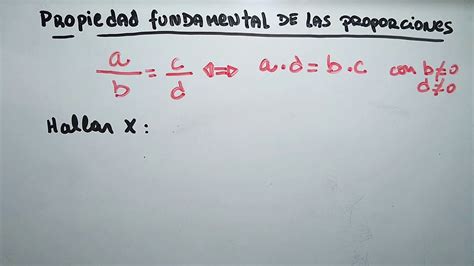 PROPIEDAD FUNDAMENTAL DE LAS PROPORCIONES
a/b = c/d ⇔ a·d = b·c con b≠0
d≠0
Hallar X: